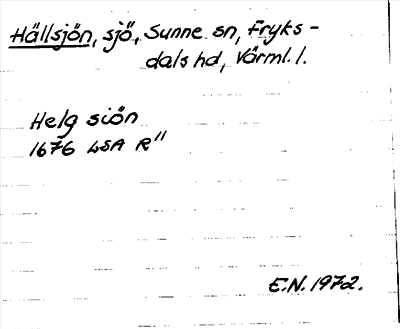 Hällsjön, sjö, Sunne sn, Fryks-
dals hd, Värml. l.
Helg siön
1676 LSA R"
E.N. 1972.